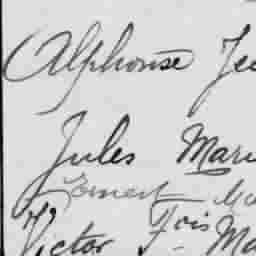 Alphonse Je
Jules Mari
Ernest Ma
Victor Fois Ma